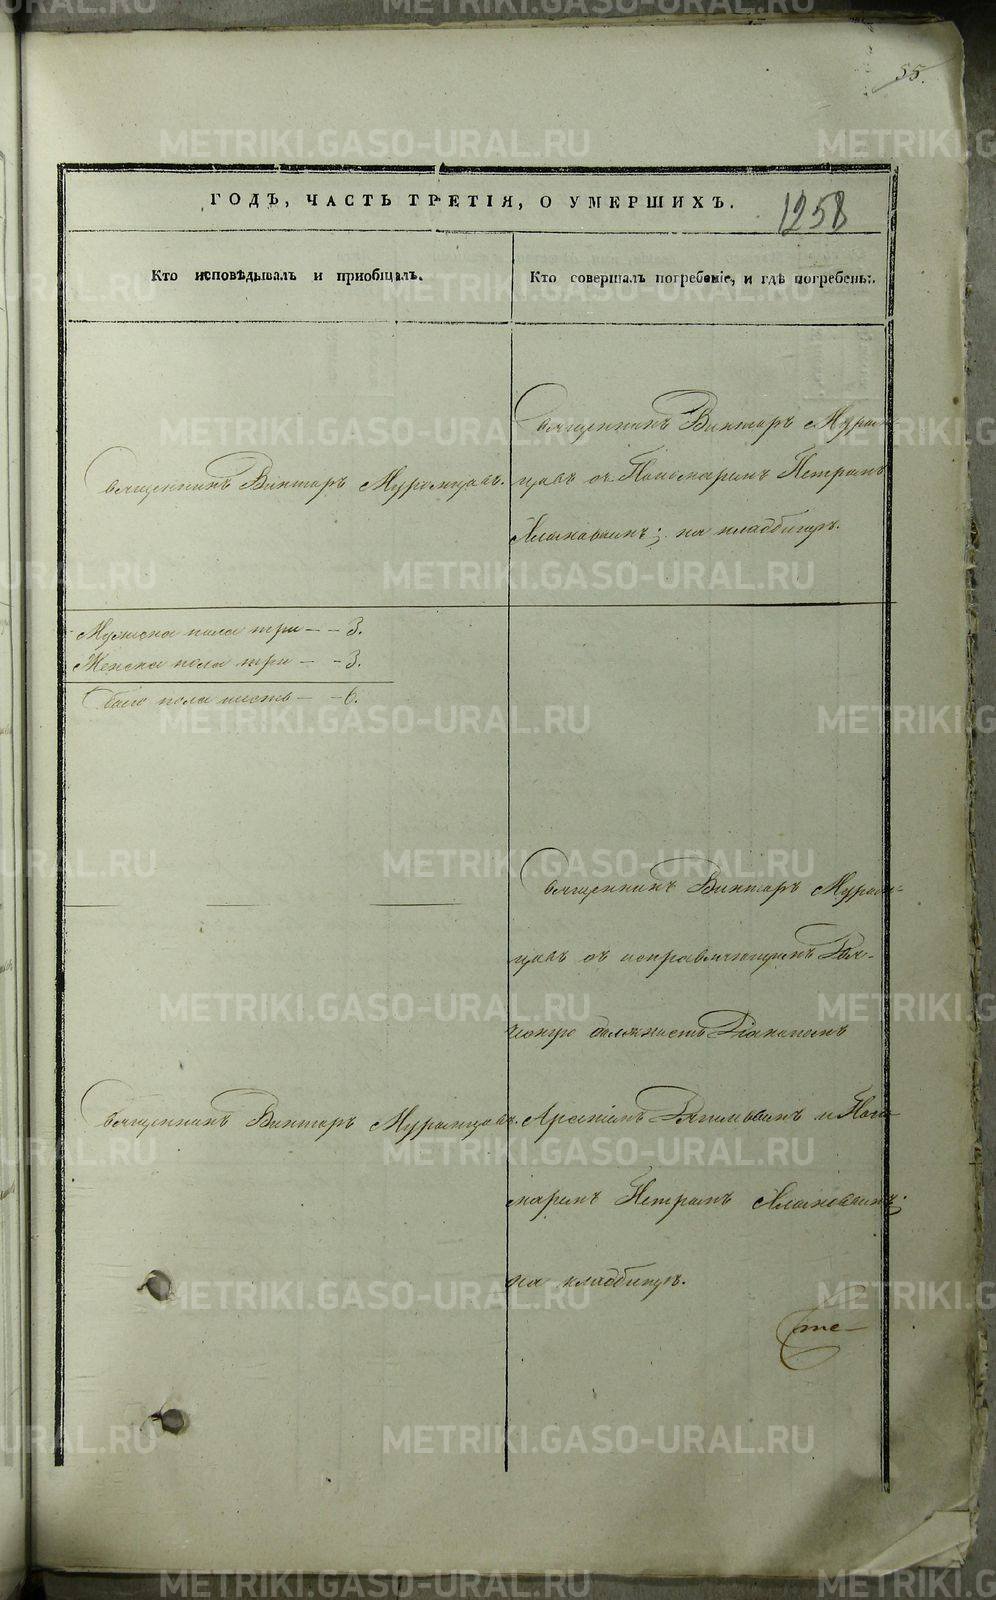 55.
ГОДЪ, ЧАСТЬ ТРЕТІЯ, О УМЕРШИХЪ.
1258
Кто исповѣдывалъ и пріобщалъ.
Кто совершалъ погребеніе, и гдѣ погребены.
Священникъ Викторъ Муромцовъ.
Священникъ Викторъ Муром-
цовъ съ Пономаремъ Петромъ
на кладбищѣ.
Мужска пола три — — 3.
Женска пола три — — 3.
Обоего пола шесть — — 6.
Священникъ Викторъ Муромцовъ.
Священникъ Викторъ Муром-
цовъ съ исправляющимъ Дья-
ческую должность Діакономъ
и Поно-
маремъ Петромъ
на кладбищѣ.
METRIKI.GASO-URAL.RU